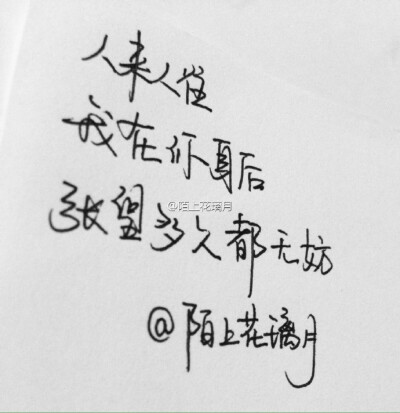 人来人往
我在你身后
@陌上花璃月
张望多久都无妨
@陌上花璃月